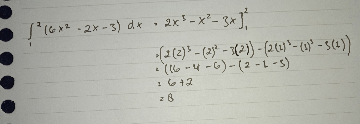 ∫₁² (6x² - 2x - 3) dx = 2x³ - x² - 3x]₁²
= (2(2)³ - (2)² - 3(2)) - (2(1)³ - (1)² - 3(1))
= (16 - 4 - 6) - (2 - 1 - 3)
= 6 + 2
= 8